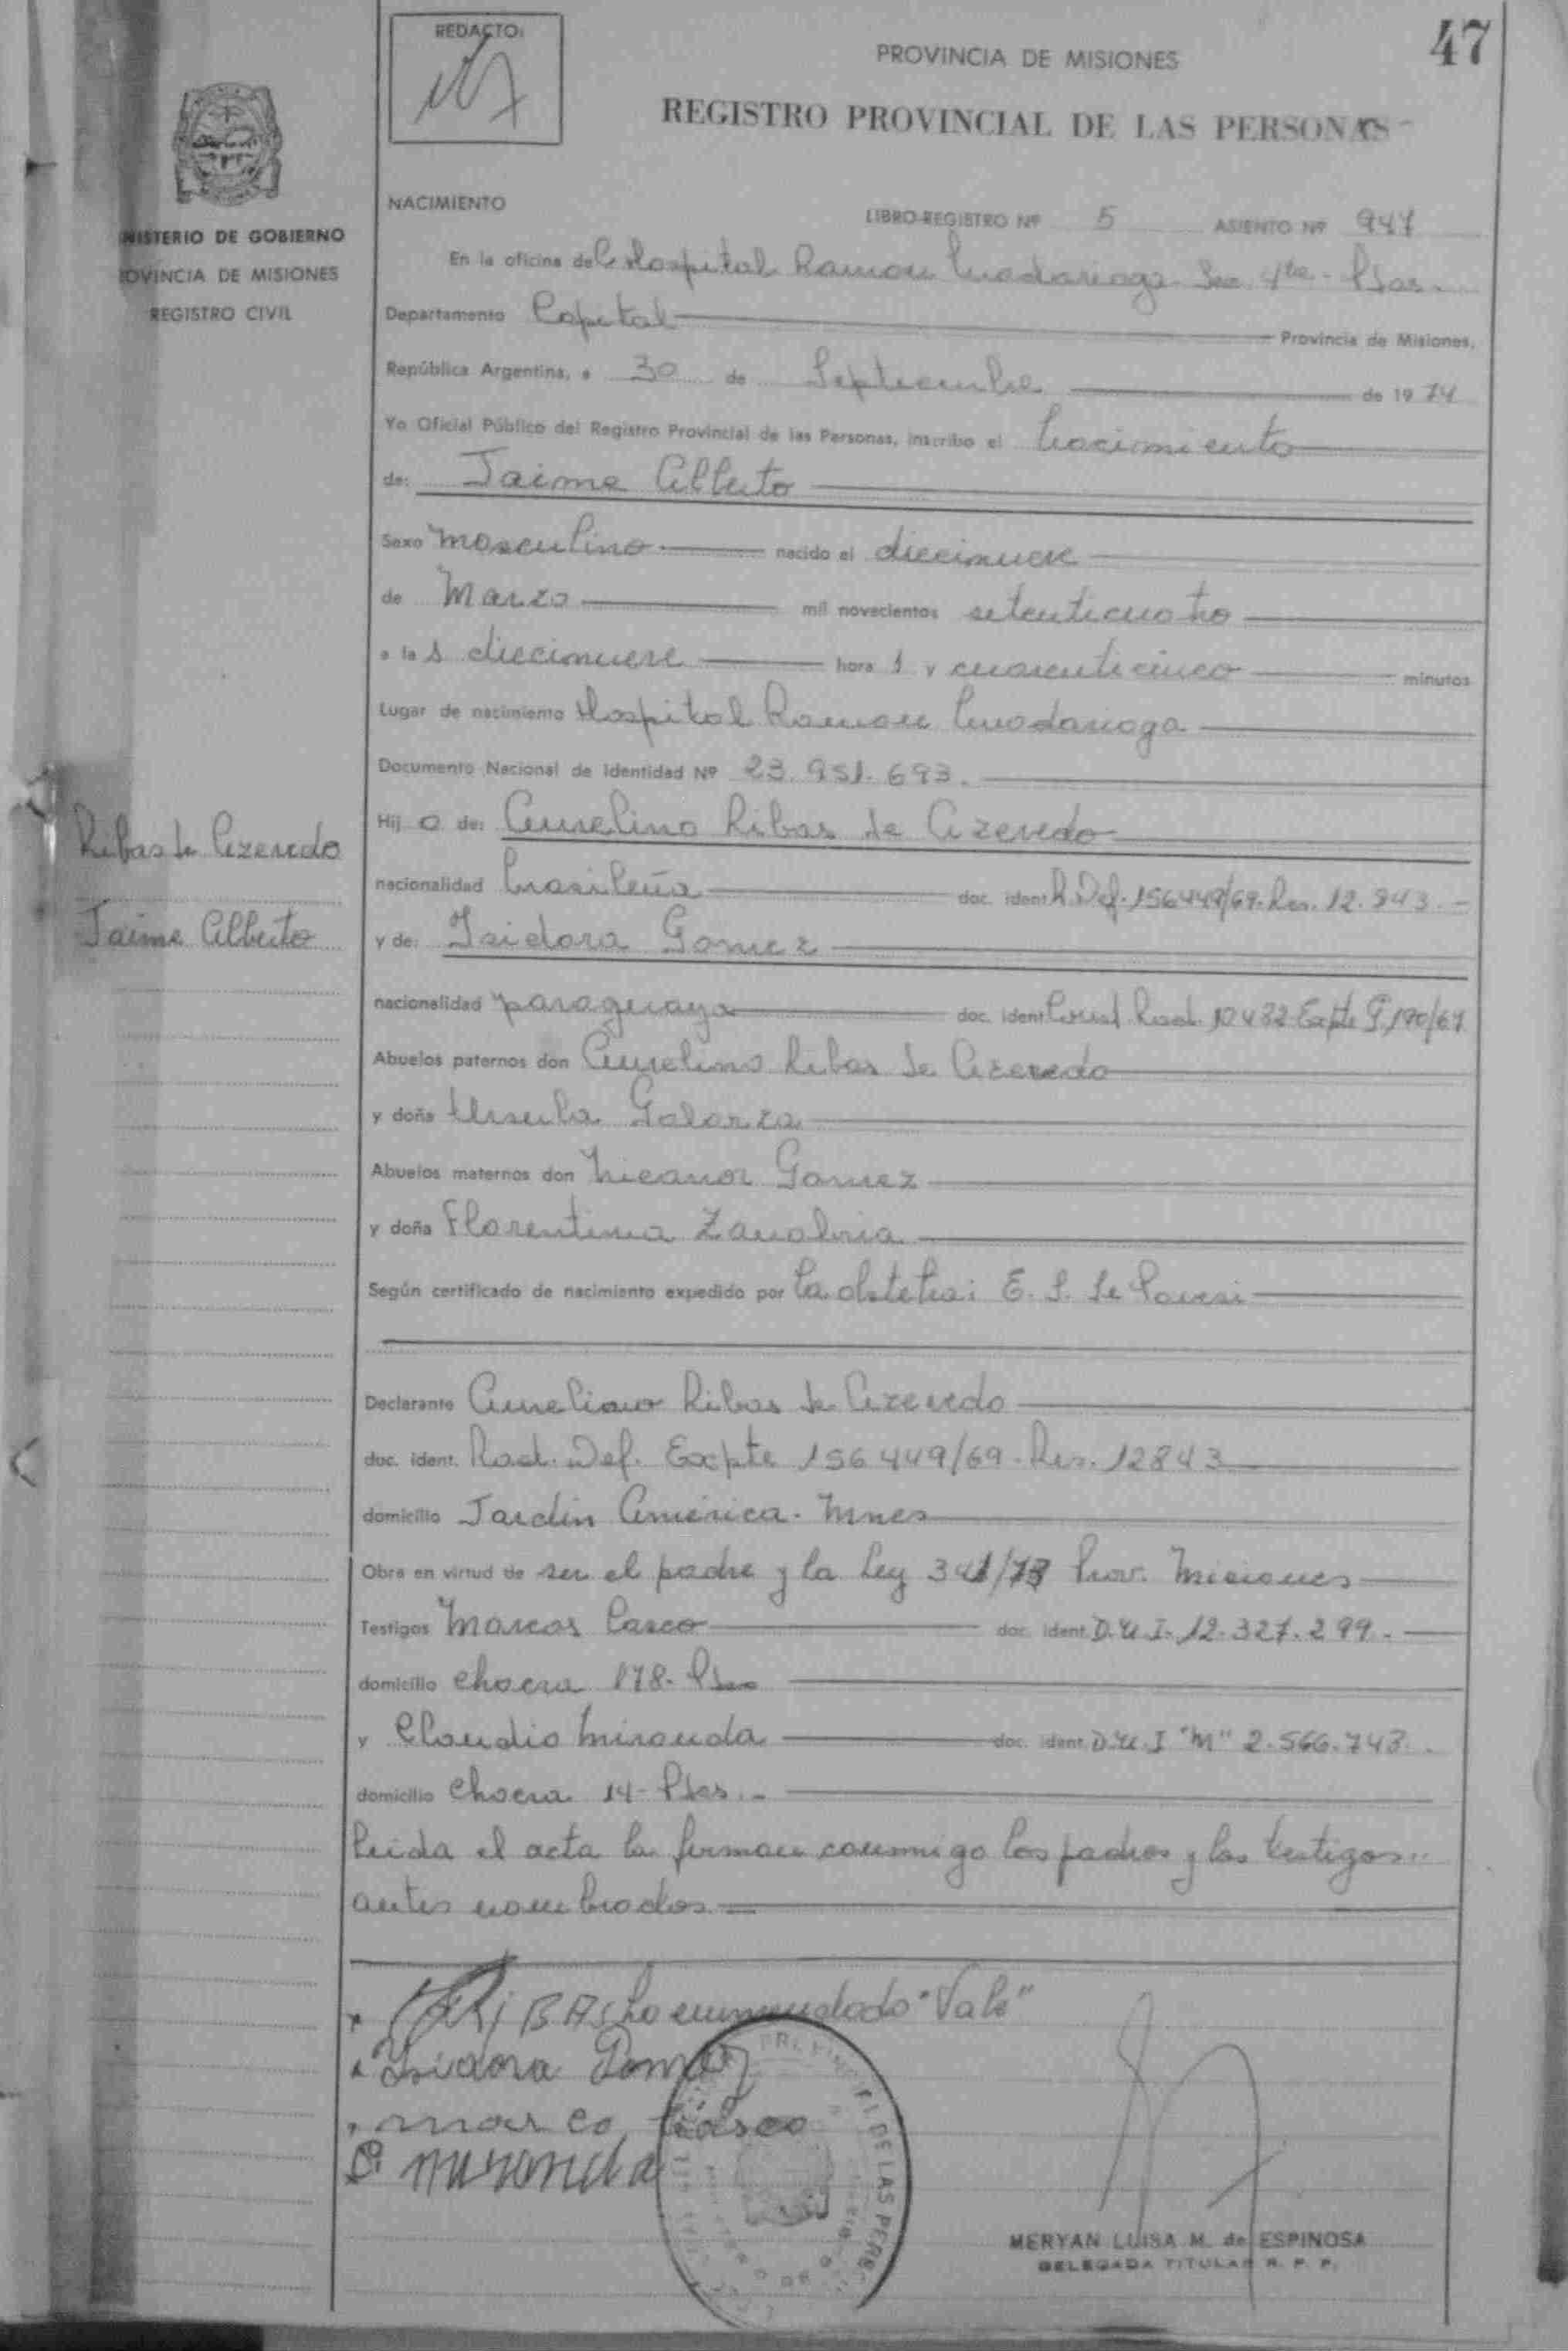 REDACTO:
47
PROVINCIA DE MISIONES
REGISTRO PROVINCIAL DE LAS PERSONAS
NISTERIO DE GOBIERNO
OVINCIA DE MISIONES
REGISTRO CIVIL
NACIMIENTO
LIBRO-REGISTRO Nº 5 ASIENTO Nº 947
En la oficina del Hospital Ramon Madariaga Sec. 4ta - Pdas.
Departamento Capital Provincia de Misiones,
República Argentina, a 30 de Septiembre de 1974
Yo Oficial Público del Registro Provincial de las Personas, inscribo el Nacimiento
de: Jaime Alberto
Sexo Masculino nacido el diecinueve
de Marzo mil novecientos setenticuatro
a las diecinueve hora s y cuarenticinco minutos
Lugar de nacimiento Hospital Ramon Madariaga
Documento Nacional de Identidad Nº 23.951.693.
Hij o de: Aurelino Ribas de Azevedo
Ribas de Azevedo
nacionalidad brasileña doc. ident. R. Def. 156449/69. Res. 12.843.-
Jaime Alberto
y de: Isidora Gomez
nacionalidad paraguaya doc. ident. Rad. 10432 Expte
Abuelos paternos don Aurelino Ribas de Azevedo
y doña Ursula Galarza
Abuelos maternos don Nicanor Gomez
y doña Florentina Zanabria
Según certificado de nacimiento expedido por la obstetra: E. S. de
Declarante Aurelino Ribas de Azevedo
doc. ident. Rad. Def. Expte 156449/69. Res. 12843
domicilio Jardin América. Mnes
Obra en virtud de ser el padre y la Ley 341/73 Prov. Misiones
Testigos Marcos Casco doc. ident. D.N.I. 12.327.299.-
domicilio chacra 178. Pdas
y Claudio Miranda doc. ident. D.N.I "M" 2.566.743.
domicilio chacra 14- Pdas.-
leida el acta la firman conmigo los padres y los testigos
antes nombrados
RiBAS Lo enmendado "Vale"
Isidora Gomez
marco casco
C miranda
MERYAN LUISA M. de ESPINOSA
DELEGADA TITULAR R. P. P.